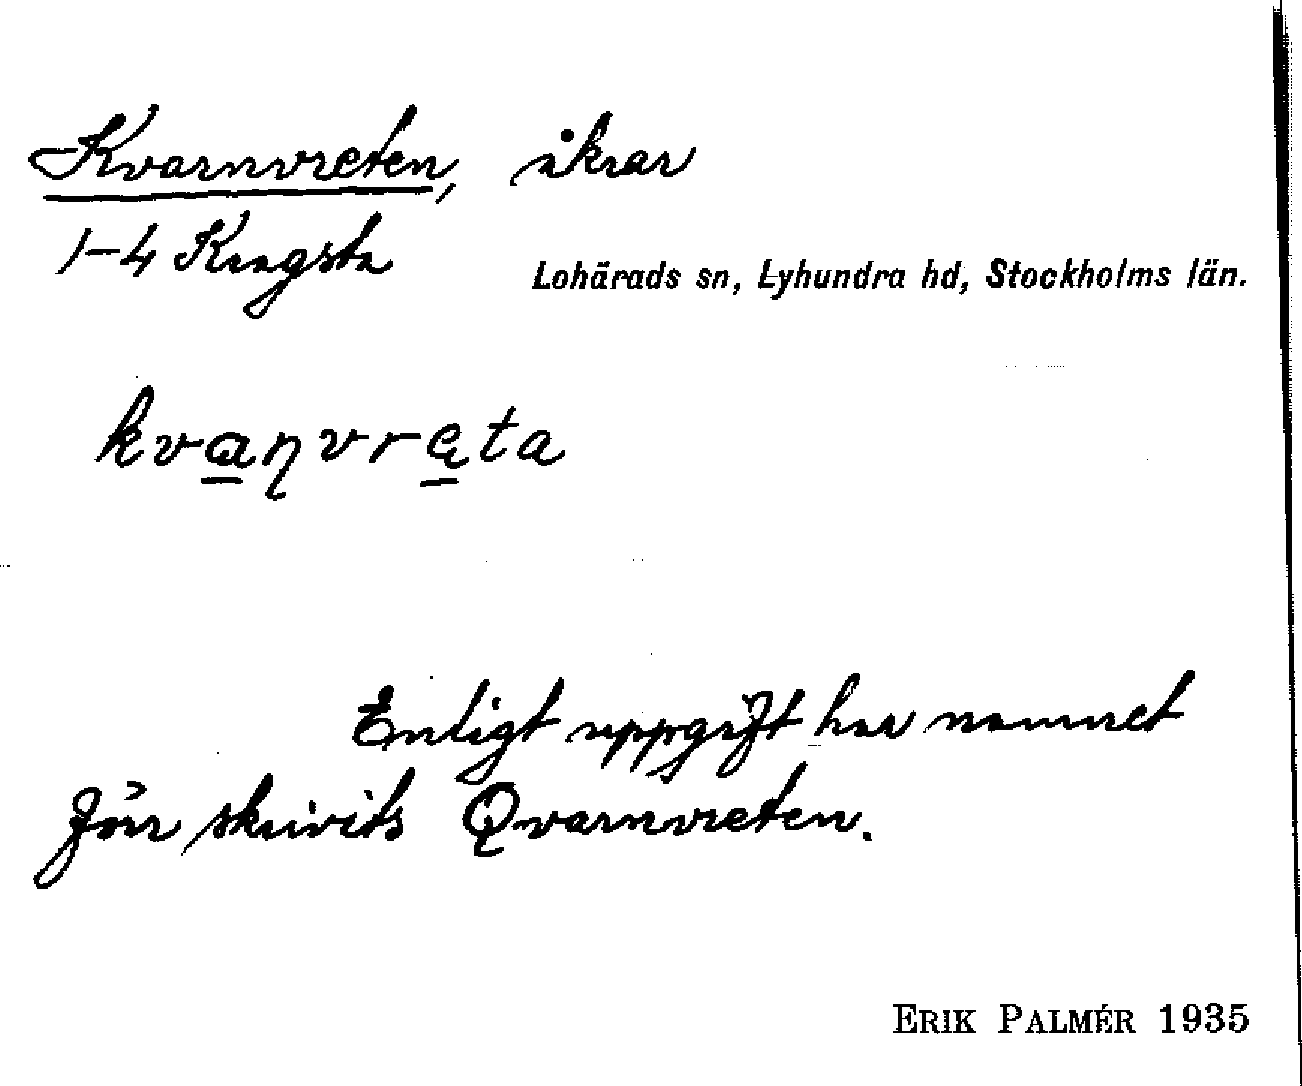 Kvarnvreten, åkrar
1-4 Kragsta
Lohärads sn, Lyhundra hd, Stockholms län.
kva̲ɳvrę̲ta
Enligt uppgift har namnet
förr skrivits Qvarnvreten.
ERIK PALMÉR 1935